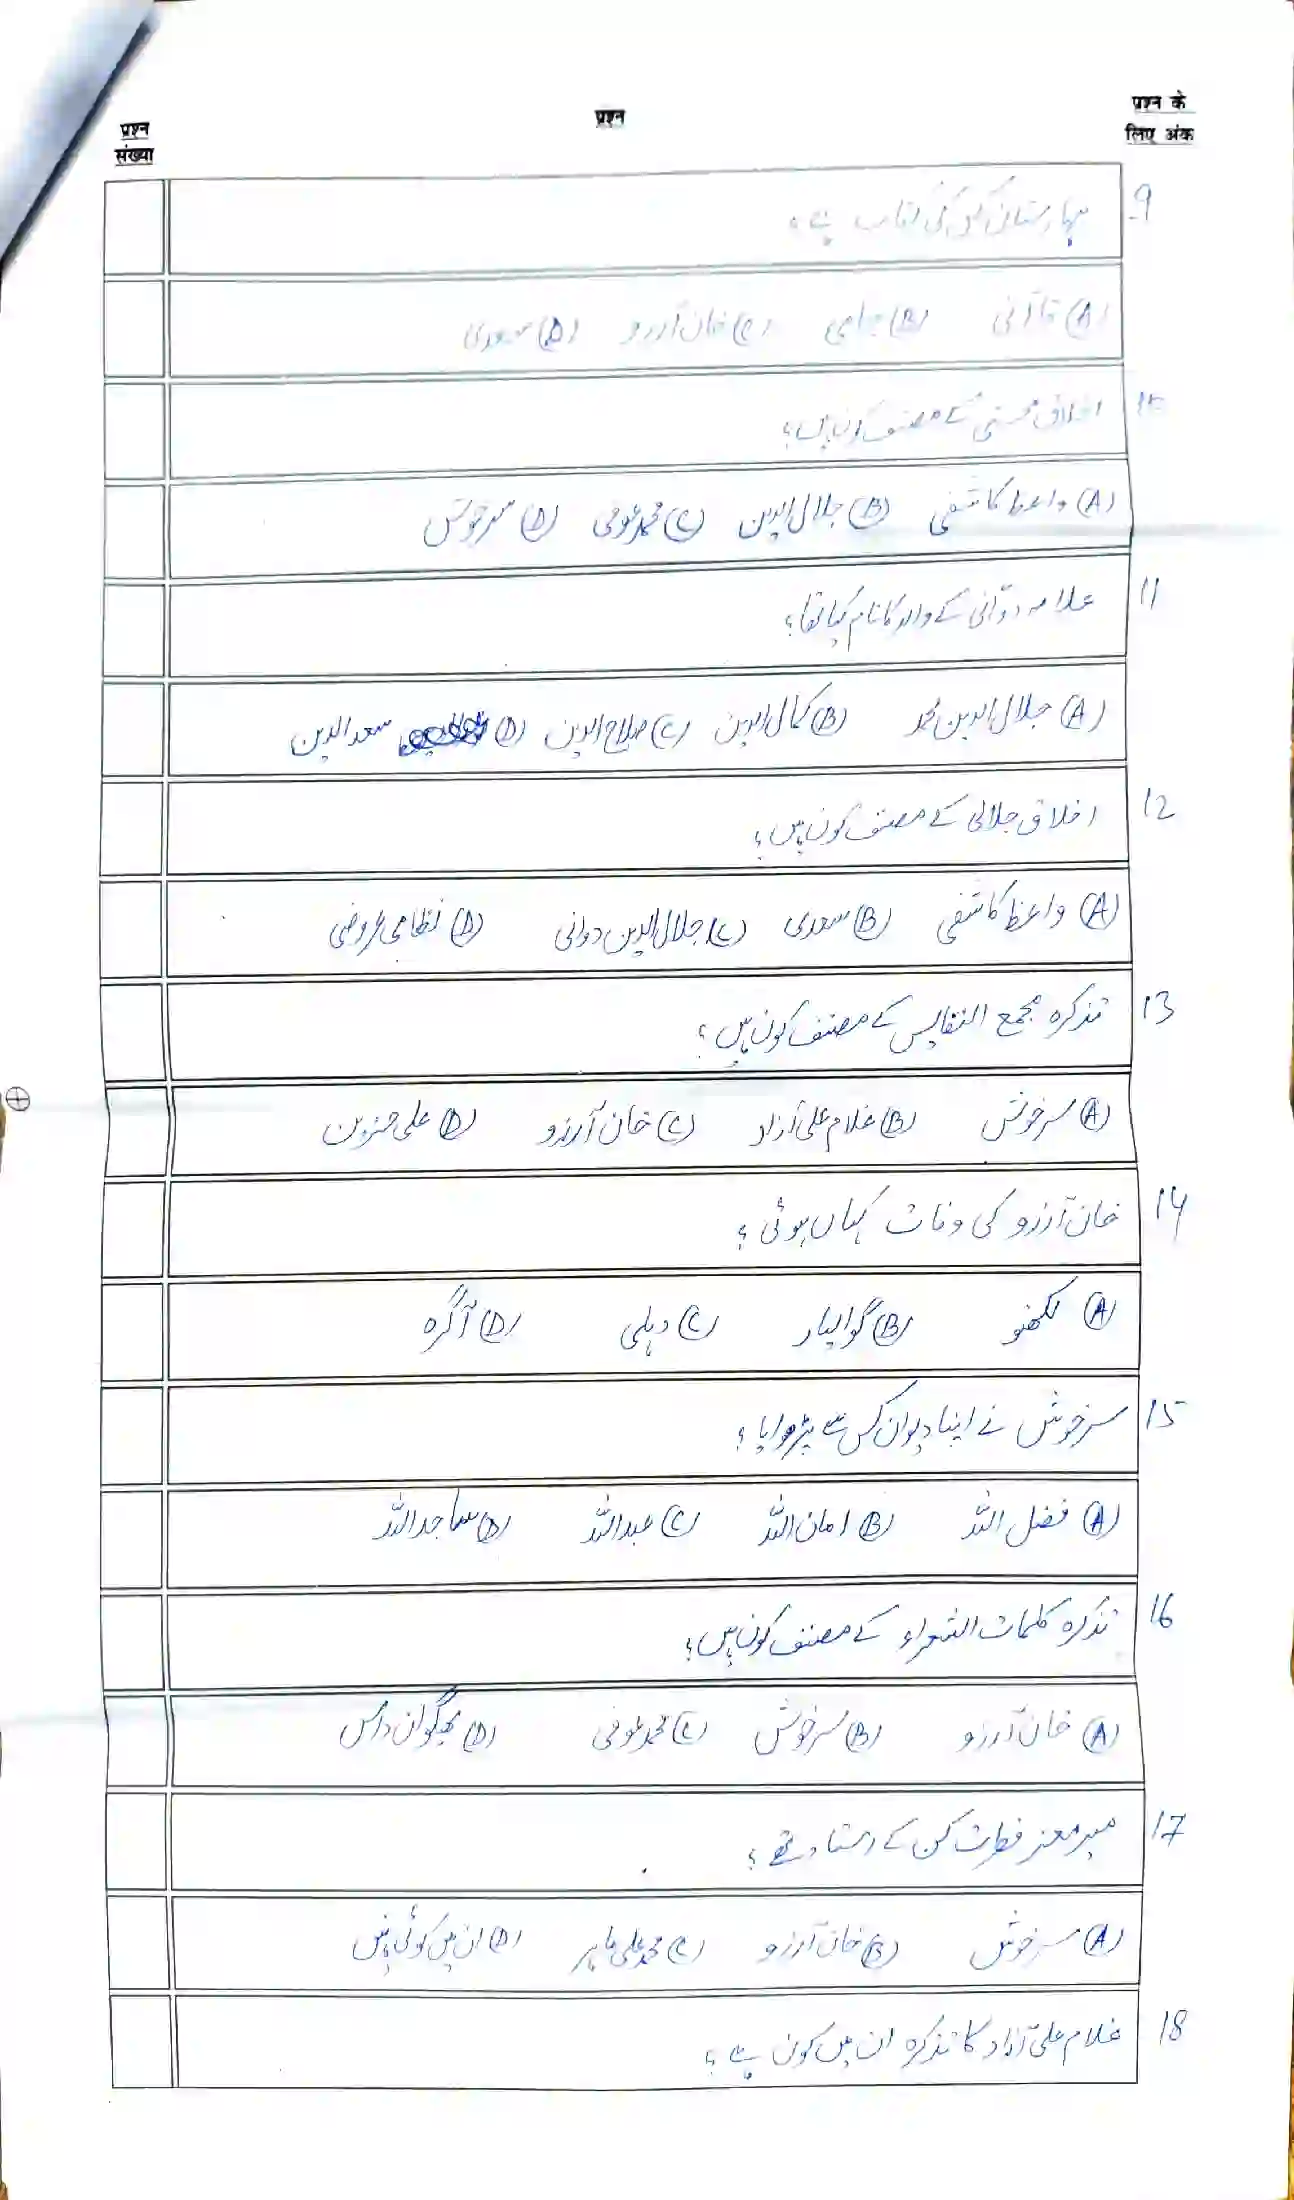 प्रश्न संख्या
प्रश्न
प्रश्न के लिए अंक
9 بہارستان کس کی کتاب ہے؟
(A) قاآنی (B) جامی (C) خان آرزو (D) سعدی
10 اخلاق محسنی کے مصنف کون ہیں؟
(A) واعظ کاشفی (B) جلال الدین (C) محمد عوفی (D) سرخوش
11 علامہ دوّانی کے والد کا نام کیا تھا؟
(A) جلال الدین محمد (B) کمال الدین (C) صلاح الدین (D) سعد الدین
12 اخلاق جلالی کے مصنف کون ہیں؟
(A) واعظ کاشفی (B) سعدی (C) جلال الدین دوانی (D) نظامی عروضی
13 تذکرہ مجمع النفایس کے مصنف کون ہیں؟
(A) سرخوش (B) غلام علی آزاد (C) خان آرزو (D) علی حزین
14 خان آرزو کی وفات کہاں ہوئی؟
(A) لکھنو (B) گوالیار (C) دہلی (D) آگرہ
15 سرخوش نے اپنا دیوان کس سے پڑھوایا؟
(A) فضل اللہ (B) امان اللہ (C) عبداللہ (D) ساجد اللہ
16 تذکرہ کلمات الشعراء کے مصنف کون ہیں؟
(A) خان آرزو (B) سرخوش (C) محمد عوفی (D) بھگوان داس
17 میر معز فطرت کس کے استاد تھے؟
(A) سرخوش (B) خان آرزو (C) محمد علی ماہر (D) ان میں کوئی نہیں
18 غلام علی آزاد کا تذکرہ ان میں کون ہے؟